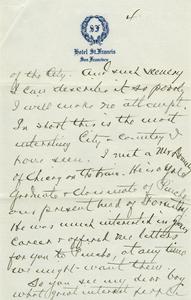 4
SF
Hotel St. Francis
San Francisco
of the City. And such scenery
I can describe it so poorly
I will make no attempt.
In short this is the most
interesting City & Country I
have seen. I met a Mr
of Chicago on the train. He is a Yale
graduate & classmate of
our present head of Forestry
He was much interested in
career & offered me letters
for you to at any time
we might want them.
So you see my dear boy
what great interest